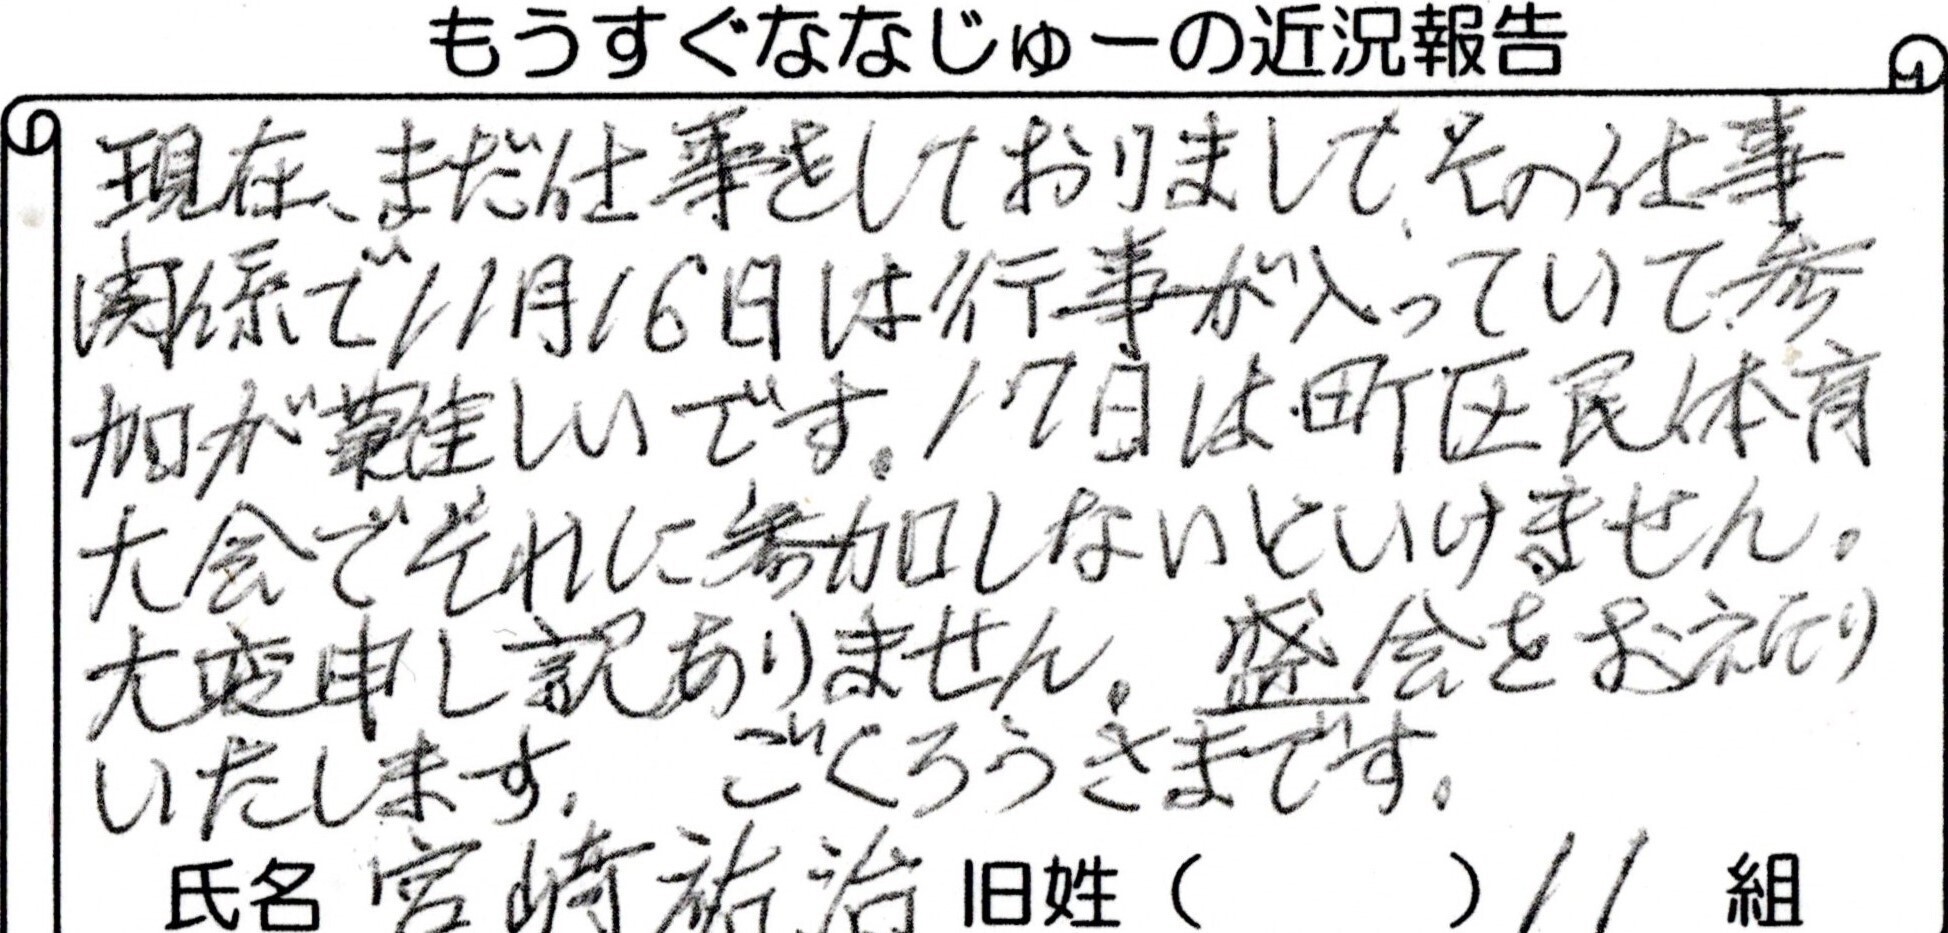 もうすぐななじゅーの近況報告
現在、まだ仕事をしておりまして、その仕事
関係で11月16日は行事が入っていて参
加が難しいです。17日は町区民体育
大会でそれに参加しないといけません。
大変申し訳ありません。盛会をお祈り
いたします。 ごくろうさまです。
氏名 宮崎祐治 旧姓( ) 11 組